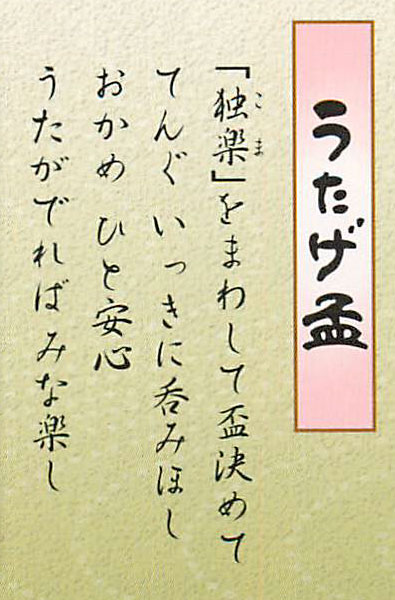 うたげ盃
「独楽」をまわして盃決めて
こま
てんぐ いっきに呑みほし
おかめ ひと安心
うたがでればみな楽し